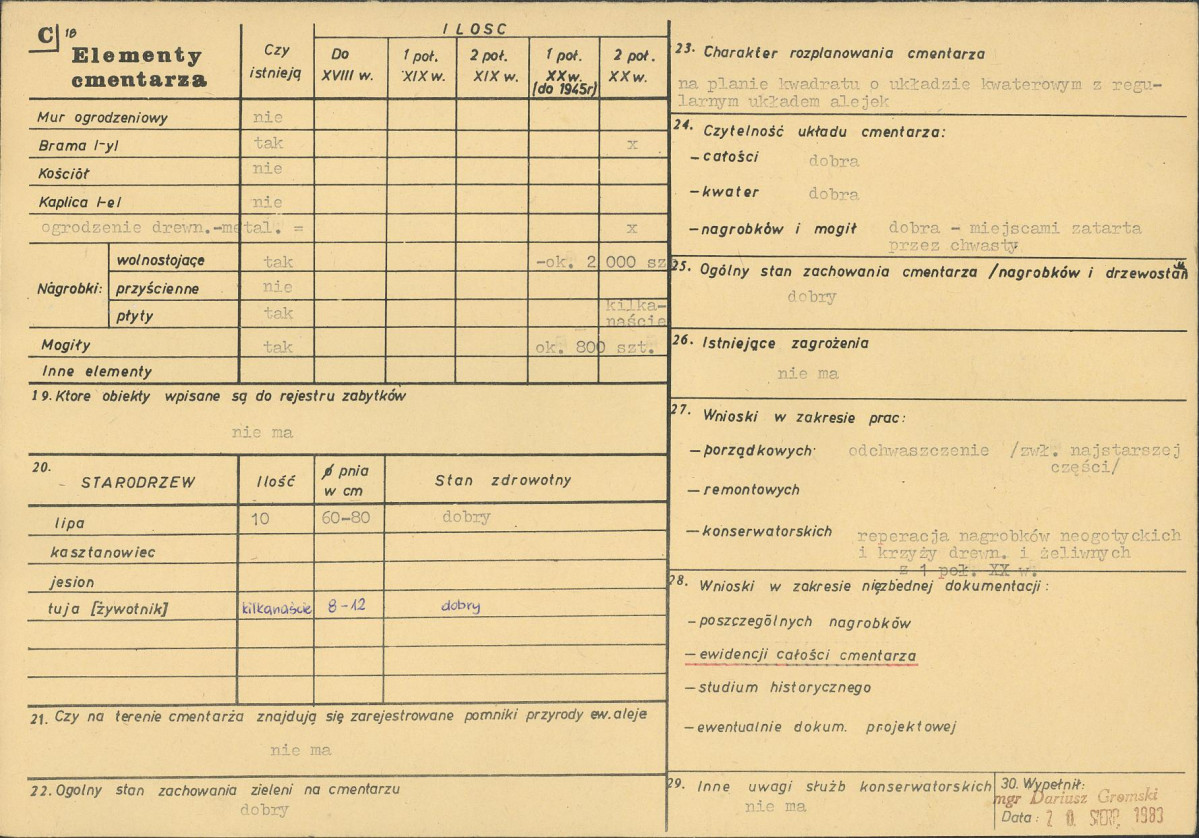 C 18
Elementy
cmentarza
Czy
istnieją
ILOSC
Do
XVIII w.
1 poł.
XIX w.
2 poł.
XIX w.
1 poł.
XX w.
(do 1945r)
2 poł.
XX w.
Mur ogrodzeniowy nie
Brama /-y/ tak x
Kościół nie
Kaplica /-e/ nie
ogrodzenie drewn.-metal. = x
Nagrobki:
wolnostojące tak -ok. 2 000 sz
przyścienne nie
płyty tak kilka-
naście
Mogiły tak ok. 800 szt.
Inne elementy
19. Ktore obiekty wpisane są do rejestru zabytków
nie ma
20.
STARODRZEW Ilość ø pnia
w cm Stan zdrowotny
lipa 10 60-80 dobry
kasztanowiec
jesion
tuja [żywotnik] kilkanaście 8-12 dobry
21. Czy na terenie cmentarża znajdują się zarejestrowane pomniki przyrody ew. aleje
nie ma
22. Ogolny stan zachowania zieleni na cmentarzu
dobry
23. Charakter rozplanowania cmentarza
na planie kwadratu o układzie kwaterowym z regu-
larnym układem alejek
24. Czytelność układu cmentarza:
- całości dobra
- kwater dobra
- nagrobków i mogił dobra - miejscami zatarta
przez chwasty
25. Ogólny stan zachowania cmentarza /nagrobków i drzewostan
dobry
26. Istniejące zagrożenia
nie ma
27. Wnioski w zakresie prac:
- porządkowych odchwaszczenie /zwł. najstarszej
części/
- remontowych
- konserwatorskich reperacja nagrobków neogotyckich
i krzyży drewn. i żeliwnych
z 1 poł. XX w.
28. Wnioski w zakresie niezbednej dokumentacji:
- poszczególnych nagrobków
- ewidencji całości cmentarza
- studium historycznego
- ewentualnie dokum. projektowej
29. Inne uwagi służb konserwatorskich
nie ma
30. Wypełnił:
mgr Dariusz Gromski
Data: 20. SIERP. 1983